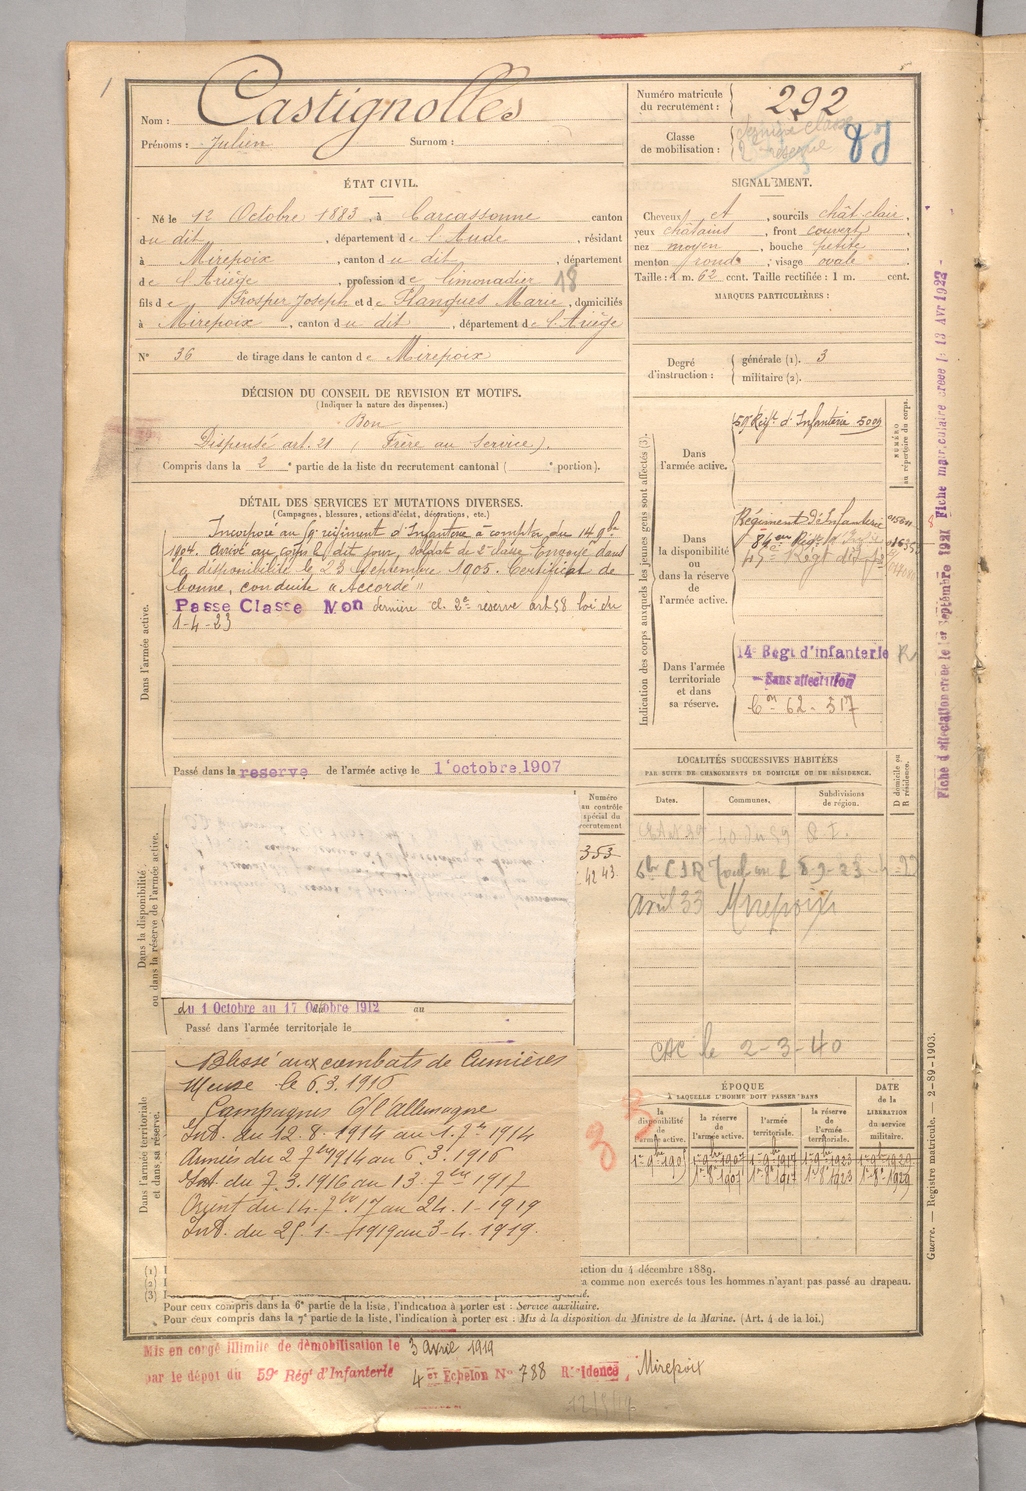 1
Nom : Castignolles
Prénoms : Julien Surnom :
Numéro matricule du recrutement : 292
Classe de mobilisation : 87
2e réserve
ÉTAT CIVIL.
Né le 12 Octobre 1883, à Carcassonne canton
du dit, département de l'Aude, résidant
à Mirepoix, canton du dit, département
de l'Ariège, profession de limonadier 18
fils de Prosper Joseph et de Planques Marie, domiciliés
à Mirepoix, canton du dit, département de l'Ariège
N° 36 de tirage dans le canton de Mirepoix
SIGNALEMENT.
Cheveux et, sourcils chât clair,
yeux châtains, front couvert,
nez moyen, bouche petite,
menton rond, visage ovale
Taille : 1 m. 62 cent. Taille rectifiée : 1 m. cent.
MARQUES PARTICULIÈRES :
Degré d'instruction : générale (1). 3
militaire (2).
DÉCISION DU CONSEIL DE REVISION ET MOTIFS.
(Indiquer la nature des dispenses.)
Bon
Dispensé art. 21 (Frère au Service).
Compris dans la 2e partie de la liste du recrutement cantonal ( e portion).
DÉTAIL DES SERVICES ET MUTATIONS DIVERSES.
(Campagnes, blessures, actions d'éclat, décorations, etc.)
Dans l'armée active.
Incorporé au 59e régiment d'Infanterie à compter du 14 9bre
1904. arrivé au corps le dit jour, soldat de 2e classe. Envoyé dans
la disponibilité le 23 Septembre 1905. Certificat de
bonne conduite "Accordé"
Passe Classe Mon dernière cl. 2e reserve art 58 loi du
1-4-23
Passé dans la reserve de l'armée active le 1er octobre 1907
Indication des corps auxquels les jeunes gens sont affectés (3).
NUMÉRO au répertoire du corps.
Dans l'armée active.
59e Régt d'Infanterie 5009
Dans la disponibilité ou dans la réserve de l'armée active.
Régiment d'Infanterie
Dans l'armée territoriale et dans sa réserve.
14e Régt d'infanterie R
Sans affectation
Con 62-317
LOCALITÉS SUCCESSIVES HABITÉES
PAR SUITE DE CHANGEMENTS DE DOMICILE OU DE RÉSIDENCE.
D domicile ou R résidence.
Dates. Communes. Subdivisions de région.
Avril 33 Mirepoix
CAC le 2-3-40
Dans la disponibilité ou dans la réserve de l'armée active.
Numéro au contrôle spécial du recrutement
353
4243
du 1 Octobre au 17 Octobre 1912 au
Passé dans l'armée territoriale le
Dans l'armée territoriale et dans sa réserve.
Blessé aux combats de Cumières
Meuse le 6.3.1916
Campagnes C/ l'Allemagne
Int. du 12-8-1914 au 1.7bre 1914
Armées du 2 7bre 1914 au 6.3.1916
Int du 7.3.1916 au 13.7bre 1917
Orient du 14-7bre 17 au 24-1-1919
Int. du 25-1-1919 au 3-4-1919.
33
ÉPOQUE
À LAQUELLE L'HOMME DOIT PASSER DANS
la disponibilité de l'armée active. la réserve de l'armée active. l'armée territoriale. la réserve de l'armée territoriale.
DATE DE LA LIBÉRATION du service militaire.
(1) I
(2) I
(3) I
ction du 4 décembre 1889.
a comme non exercés tous les hommes n'ayant pas passé au drapeau.
Pour ceux compris dans la 6e partie de la liste, l'indication à porter est : Service auxiliaire.
Pour ceux compris dans la 7e partie de la liste, l'indication à porter est : Mis à la disposition du Ministre de la Marine. (Art. 4 de la loi.)
Mis en congé illimité de démobilisation le 3 avril 1919
par le dépôt du 59e Régt d'Infanterie 4er Echelon N° 788 Résidence, Mirepoix
Guerre. — Registre matricule. — 2-89-1903.
Fiche d'affectation créée le 1er Septembre 1921 Fiche matriculaire créée le 13 Avr 1922